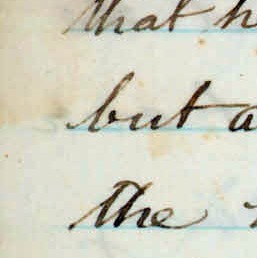 that h
but a
the